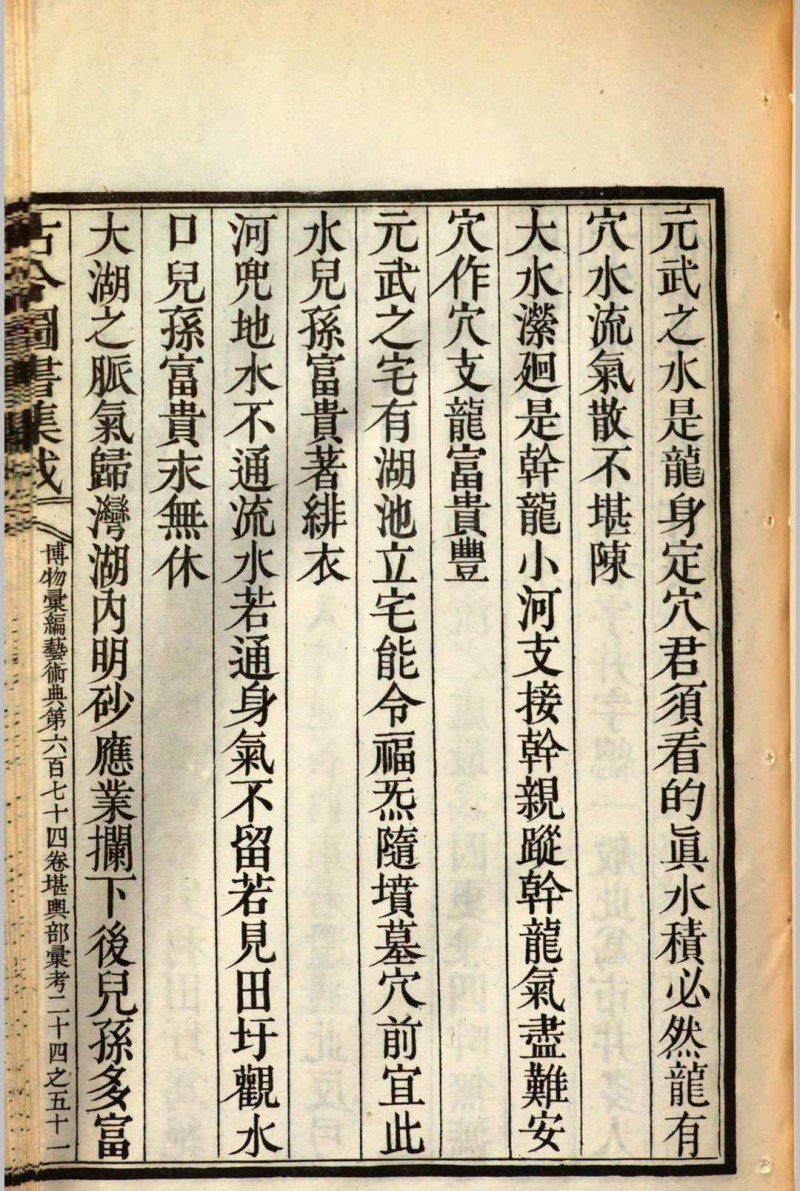 元武之水是龍身定穴君須看的眞水積必然龍有
穴水流氣散不堪陳
大水濚廻是幹龍小河支接幹親蹤幹龍氣盡難安
穴作穴支龍富貴豐
元武之宅有湖池立宅能令福炁隨墳墓穴前宜此
水兒孫富貴著緋衣
河兜地水不通流水若通身氣不留若見田圩觀水
口兒孫富貴永無休
大湖之脈氣歸灣湖內明砂應業攔下後兒孫多富
古今圖書集成
博物彙編藝術典第六百七十四卷堪輿部彙考二十四之五十一